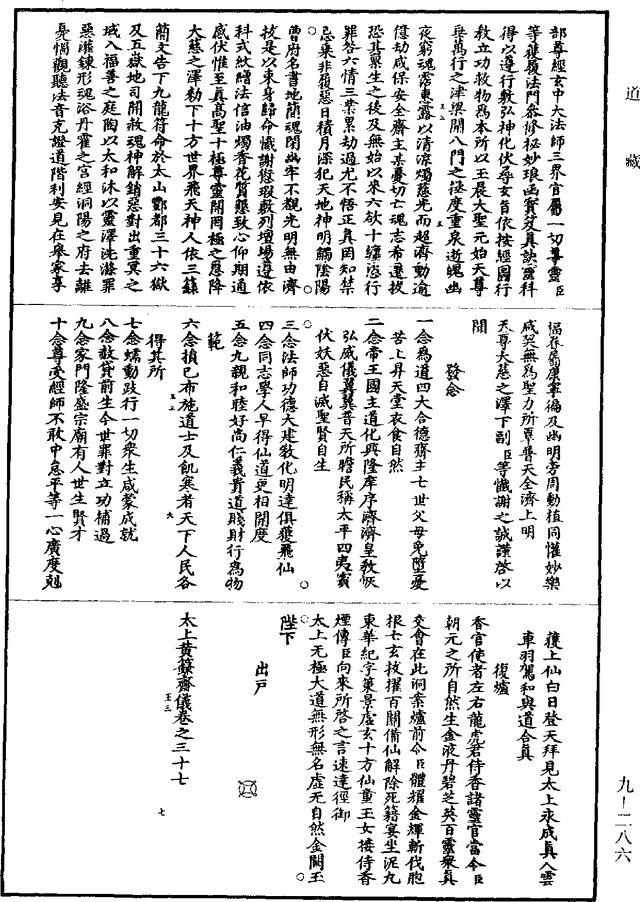 道藏
部尊經玄中大法師三界官屬一切尊靈臣
等獲履法門參修祕妙琅函寶笈真訣靈科
得以遵行敷弘神化伏尋玄旨依按經圖行
教立功救物爲本所以玉晨大聖元始天尊
垂萬行之津梁開八門之極度重泉逝魄幽
夜窮魂露惠露以清涼燭慈光而超濟動逾
億劫咸保安全齋主某憂切亡魂志希遷拔
恐其累生之後及無始以來六欲十纏恣行
罪咎六情三業累劫過尤不悟正真罔知禁
忌乘非復惡日積月深犯天地神明觸陰陽
曹府名書地簡魂閉幽牢不觀光明無由濟
拔是以束身歸命懺謝愆瑕敷列壇場遵依
科式紋繒法信油燭香花質懇致心仰期通
感伏惟至真高聖十極尊靈開罔極之恩降
大慈之澤勑下十方世界飛天神人依三籙
簡文告下九龍符命於太山酆都三十六獄
及五嶽地司開赦魂神解銷惡對出重冥之
域入福善之庭陶以太和沐以靈澤洗滌罪
惡灌鍊形魂浴丹霍之宮經洞陽之府去離
憂惱觀聽法音克證道階利安見在舉家享
福眷屬康寧徧及幽明旁周動植同懽妙樂
咸契無爲聖力所覃普天全濟上明
天尊大慈之澤下副臣等懺謝之誠謹啓以
聞
發念
一念爲道四大合德齋主七世父母免墮憂
苦上昇天堂衣食自然
二念帝王國主道化興隆庠序濟濟皇教恢
弘威儀翼翼普天所瞻民稱太平四夷賓
伏妖惡自滅聖賢自生
三念法師功德大建教化明達俱獲飛仙
四念同志學人早得仙道更相開度
五念九親和睦好尚仁義貴道賤財行爲物
範
六念損己布施道士及飢寒者天下人民各
得其所
七念蠕動跂行一切衆生咸蒙成就
八念赦貸前生今世罪對立功補過
九念家門隆盛宗廟有人世生賢才
十念尊受經師不敢中怠平等一心廣度剋
獲上仙白日登天拜見太上永成真人雲
車羽駕和與道合真
復爐
香官使者左右龍虎君侍香諸靈官當令臣
朝元之所自然生金液丹碧芝英百靈衆真
交會在此洞案爐前令臣體耀金輝斬伐胞
根七玄披擢百關備仙解除死籍宴坐泥丸
東華紀字策景虛玄十方仙童玉女接侍香
煙傳臣向來所啓之言速達徑御
太上無極大道無形無名虛無自然金闕玉
陛下
出戶
太上黃籙齋儀卷之三十七
七
九-二八六